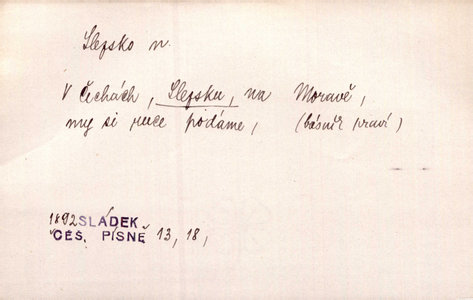 Slezsko n.
V Čechách, Slezsku, na Moravě,
my si ruce podáme, (básník praví)
1892 SLÁDEK
ČES. PÍSNĚ 13, 18,